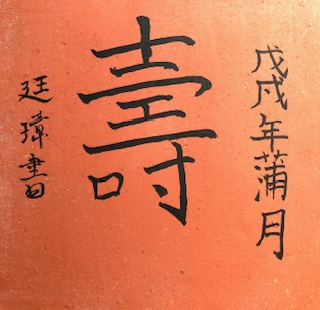 戊戌年蒲月
壽
廷璋書